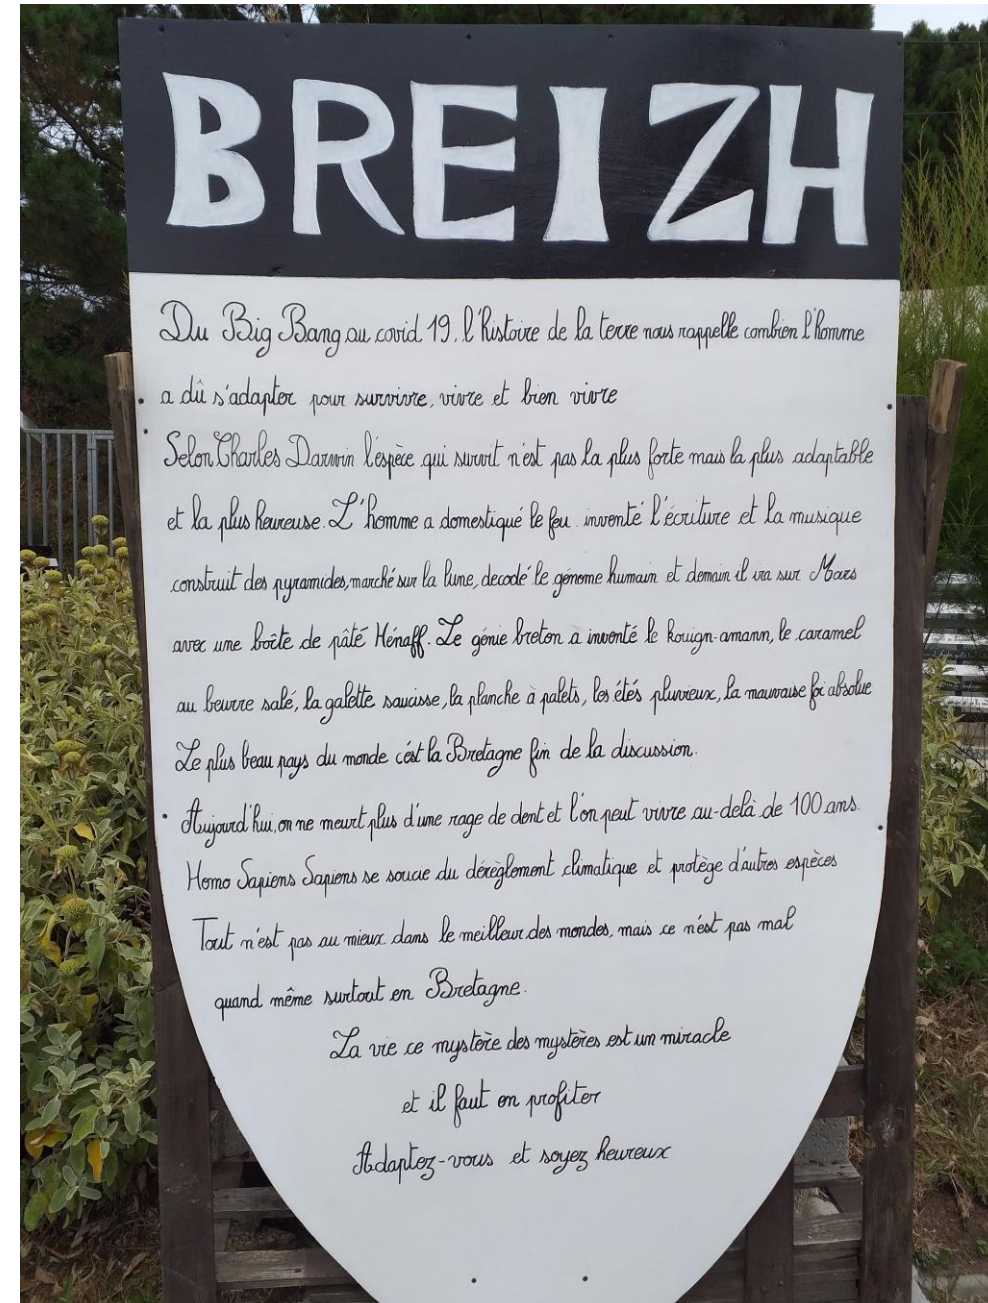 BREIZH
Du Big Bang au covid 19, l'histoire de la terre nous rappelle combien l'homme
a dû s'adapter pour survivre, vivre et bien vivre
Selon Charles Darwin l'espèce qui survit n'est pas la plus forte mais la plus adaptable
et la plus heureuse. L'homme a domestiqué le feu. inventé l'écriture et la musique
construit des pyramides, marché sur la lune, decodé le génome humain et demain il ira sur Mars
avec une boîte de pâté Hénaff. Le génie breton a inventé le kouign-amann, le caramel
au beurre salé, la galette saucisse, la planche à palets, les étés pluvieux, la mauvaise foi absolue
Le plus beau pays du monde c'est la Bretagne fin de la discussion.
Aujourd'hui, on ne meurt plus d'une rage de dent et l'on peut vivre au-delà de 100 ans.
Homo Sapiens Sapiens se soucie du dérèglement climatique et protège d'autres espèces
Tout n'est pas au mieux dans le meilleur des mondes, mais ce n'est pas mal
quand même surtout en Bretagne.
La vie ce mystère des mystères est un miracle
et il faut en profiter
Adaptez-vous et soyez heureux